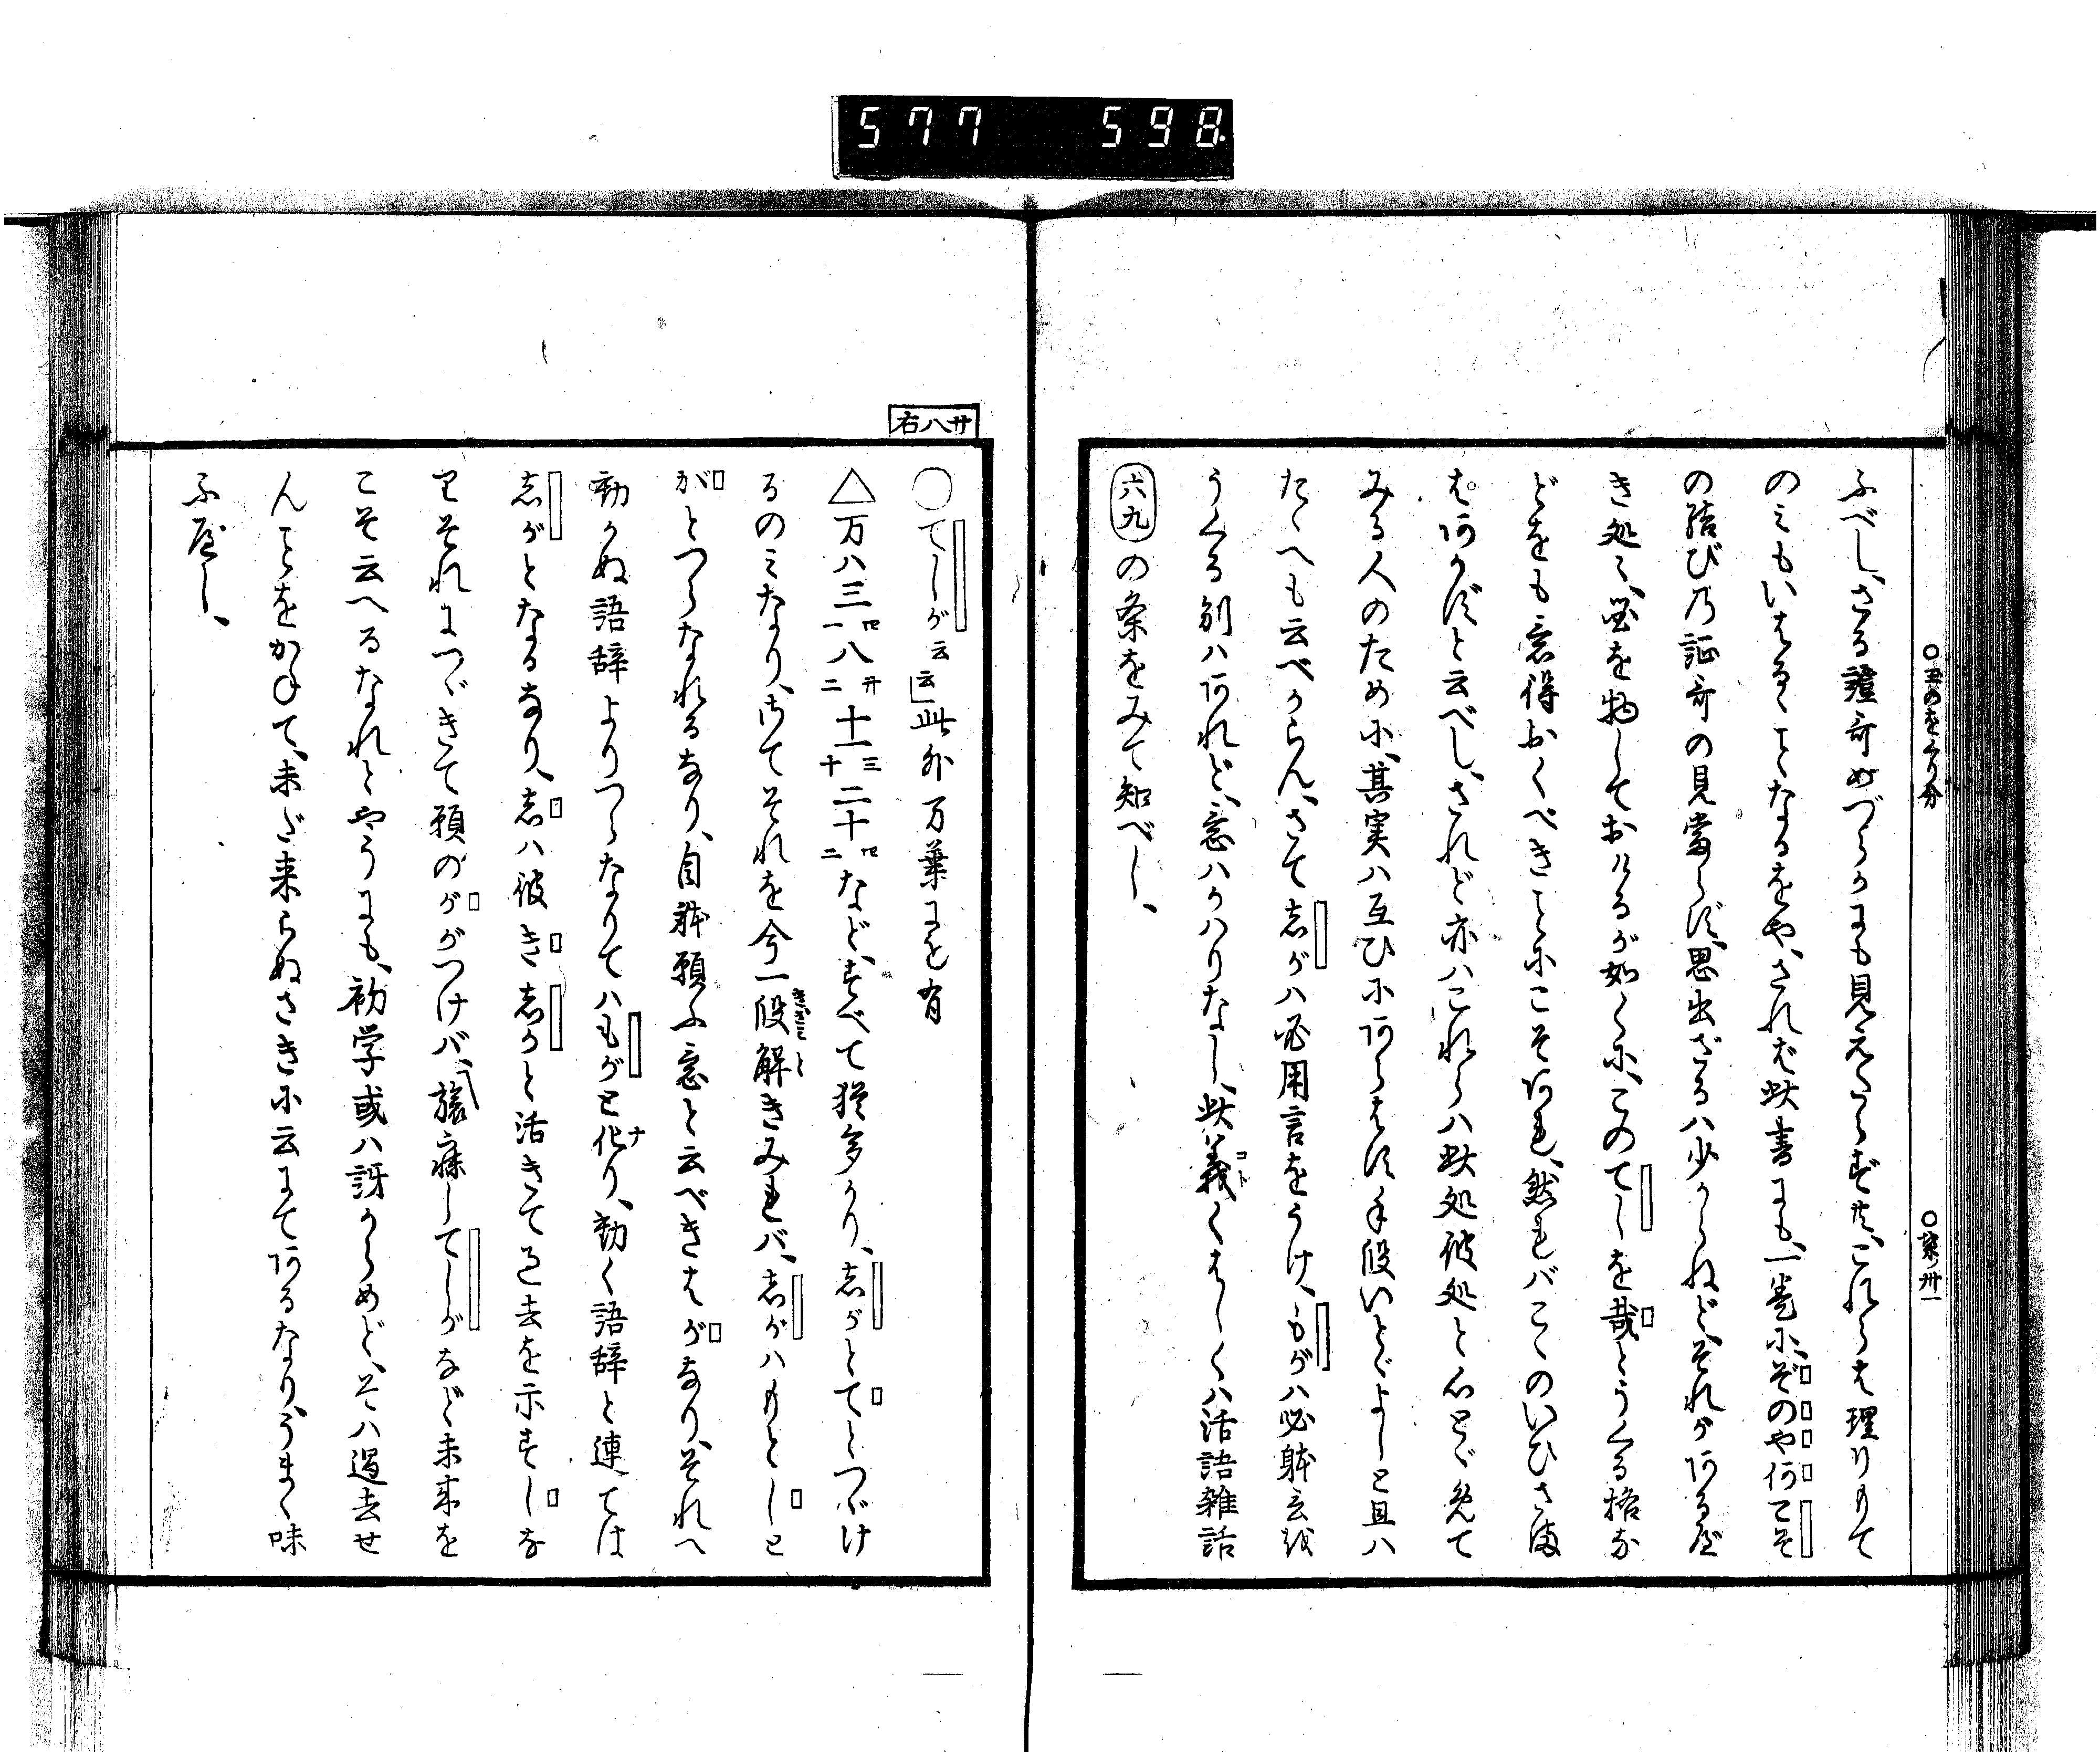 577 598
○玉のをくり分 ○栞 卅一
ふべし、さる證哥めづらかにも見えたらず共、これらは理りもて
のみもいはるゝことなるをや、されば此書にも、一巻に、ぞのや何こそ
の結び乃証哥の見當らず、思出ざるハ少からねど、それがあるべ
き処に、圏を物しておけるが如くに、このてしを哉とうくる格な
どをも意得おくべきことにこそあれ、然もバこゝのいひさま
はあかずと云べし、されど亦ハこれらハ此処彼処と心とゞめて
みる人のために、其実ハ互ひにあらはす手段いとゞよしと且ハ
たゝへも云べからん、さてしがハ必用言をうけ、もがハ必躰言を
うくる別ハあれど、意ハかハりなし、此義くはしくハ活語雑話
六九の条をみて知べし、
廿八右
○てしが云云」此外万葉にも有
△万八三一八廿二十一三十二十二など、すべて猶多かり、しがとてとつゞけ
るのミなり、さてそれを今一段解きみれバ、しがハもとしと
がとつらなれるなり、自躰願ふ意と云べきはがなり、それへ
動かぬ語辞よりつらなりてハもがと化り、動く語辞と連ては
しがとなるなり、しハ彼きしかと活きて過去を示すしな
りそれにつゞきて願のががつけバ、旅寐してしがなど未来を
こそ云へるなれとやうにも、初学或ハ訝からめど、そハ過去せ
んことをかねて、未だ来らぬさきに云にてあるなり、うまく味
ふべし、